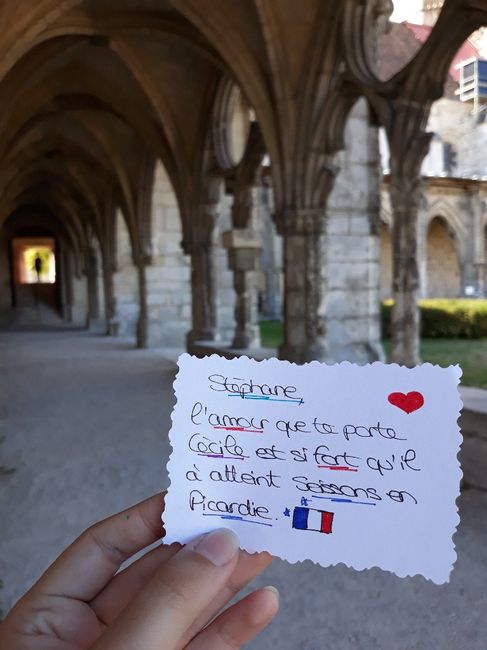 Stéphane
l'amour que te porte
Cécile est si fort qu'il
à atteint Soissons en
Picardie.